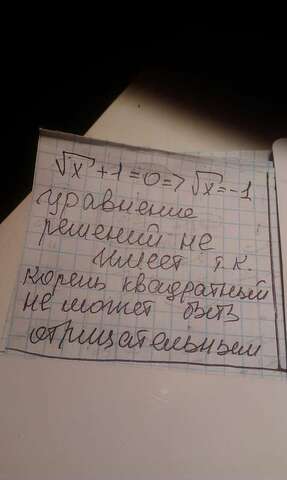 √x + 1 = 0 => √x = -1
уравнение
решений не
имеет т.к.
корень квадратный
не может быть
отрицательным